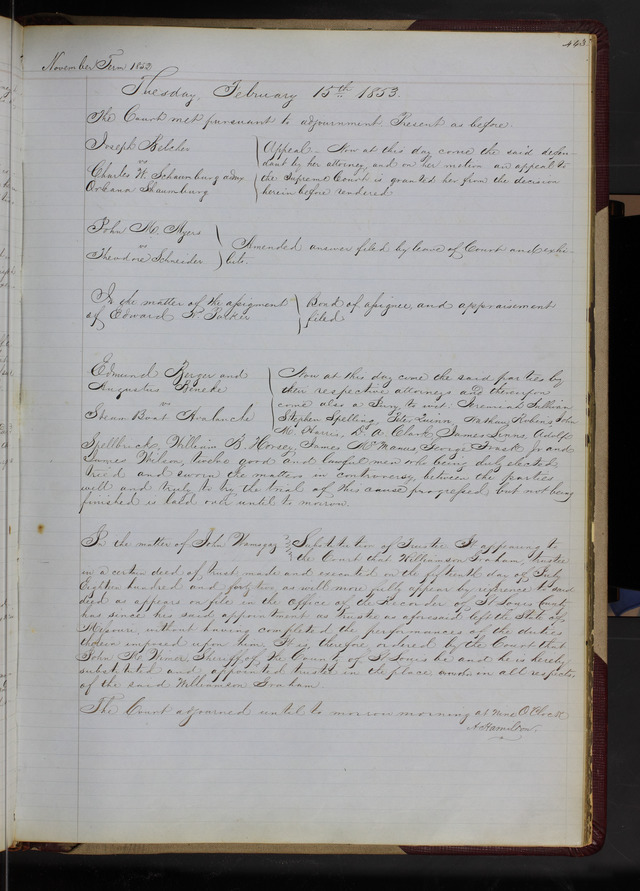 443.
November Term 1852
Tuesday, February 15th 1853.
The Court met pursuant to adjournment. Present as before.
Joseph Belcher
vs
Charles W. Schaumburg admx
Orleana Shaumburg
Appeal - Now at this day come the said defen-
dant by her attorney, and on her motion an appeal to
the Supreme Court is granted her from the decision
herein before rendered.
John M. Myers
vs
Theodore Schneider
Amended answer filed by leave of Court and exhi-
bits.
In the matter of the assignment
of Edward P.
Bond of assignee, and appraisement
filed
Edmund Berger and
Augustus
vs
Steam Boat Avalanche
Now at this day come the said parties by
their respective attorneys and thereupon
come also a Jury to wit. Jeremiah Sullivan
Stephen Spelling, Peter Quinn, Nathan Robins John
Mc Harris, A. Clark, James Adolph
William B. James McManus, George Jr and
James Wilson, twelve good and lawful men who being duly elected
tried and sworn the matters in controversy, between the parties
well and truly to try the trial of this cause progressed but not being
finished is laid over until to morrow.
In the matter of John
Substitution of Trustee It appearing to
the Court that Williamson Graham, trustee
in a certain deed of trust made and executed on the fifteenth day of July
Eighteen hundred and forty two, as will more fully appear by reference to said
deed as appears on file in the office of the Recorder of St Louis County
has since his said appointment as trustee as aforesaid left the State of
Missouri, without having completed the performances of the duties
therein imposed upon him, It is, therefore, ordered by the Court that
John M. Wimer, Sheriff of the County of St Louis be and he is hereby
substituted and appointed trustee in the place and in all respects,
of the said Williamson Graham.
The Court adjourned until to morrow morning at nine O'Clock
A Hamilton.